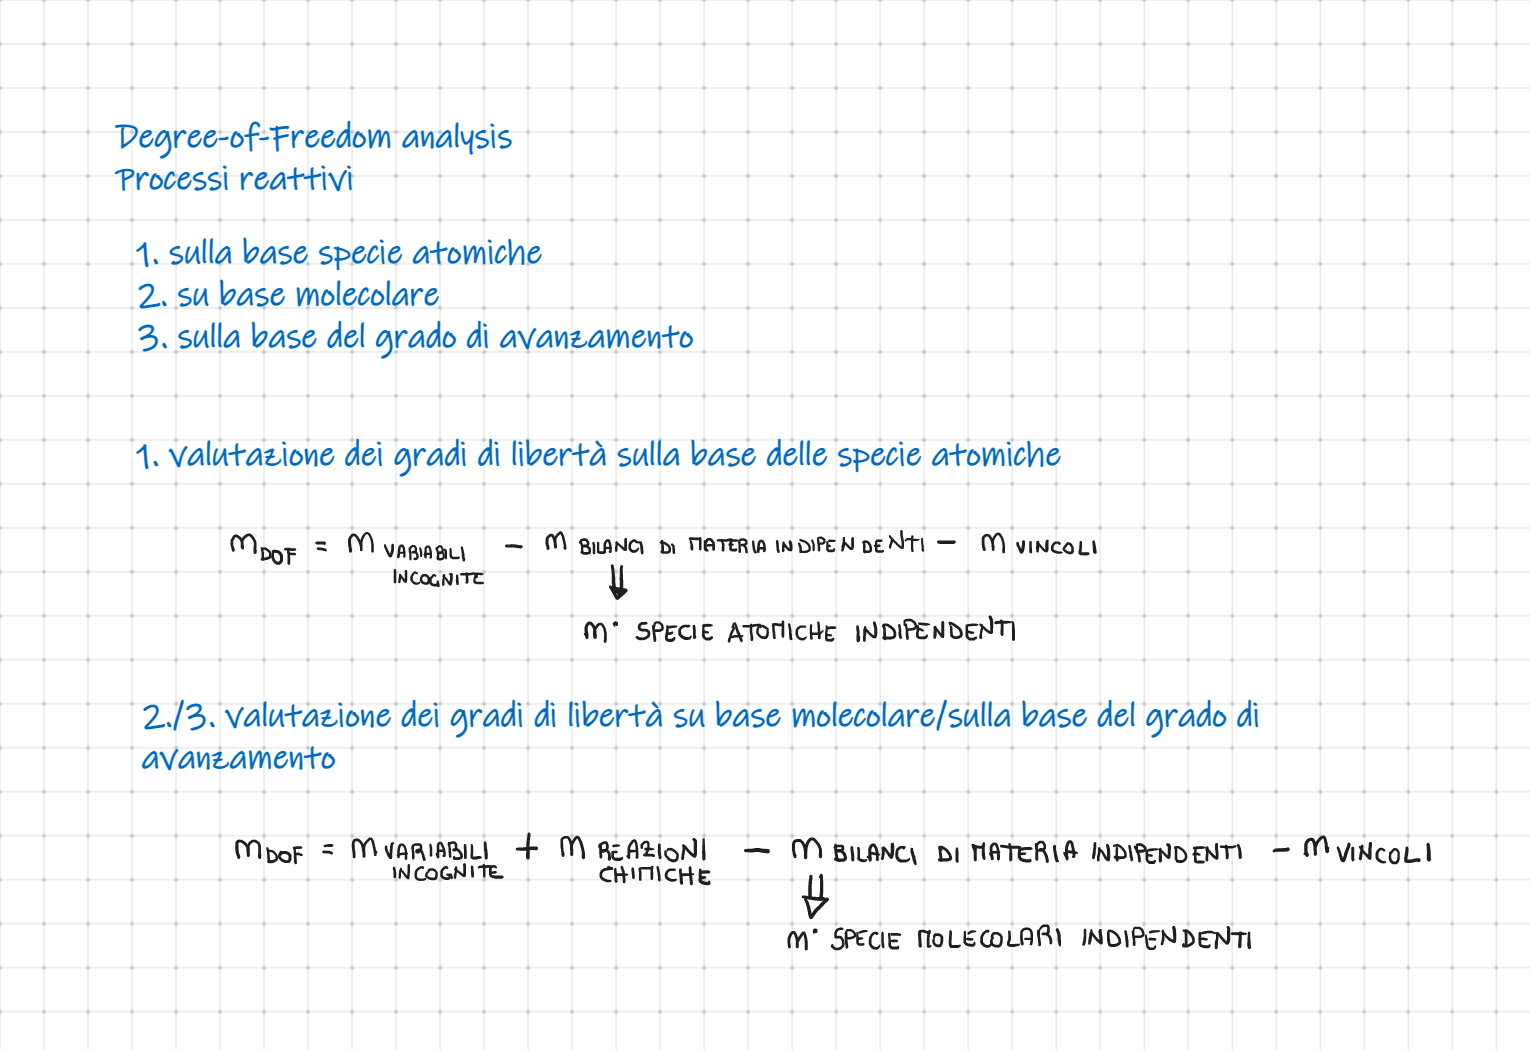 Degree-of-Freedom analysis
Processi reattivi
1. sulla base specie atomiche
2. su base molecolare
3. sulla base del grado di avanzamento
1. valutazione dei gradi di libertà sulla base delle specie atomiche
n DOF = n VARIABILI INCOGNITE - n BILANCI DI MATERIA INDIPENDENTI - n VINCOLI
⇓
n° SPECIE ATOMICHE INDIPENDENTI
2./3. valutazione dei gradi di libertà su base molecolare/sulla base del grado di
avanzamento
n DOF = n VARIABILI INCOGNITE + n REAZIONI CHIMICHE - n BILANCI DI MATERIA INDIPENDENTI - n VINCOLI
⇓
n° SPECIE MOLECOLARI INDIPENDENTI